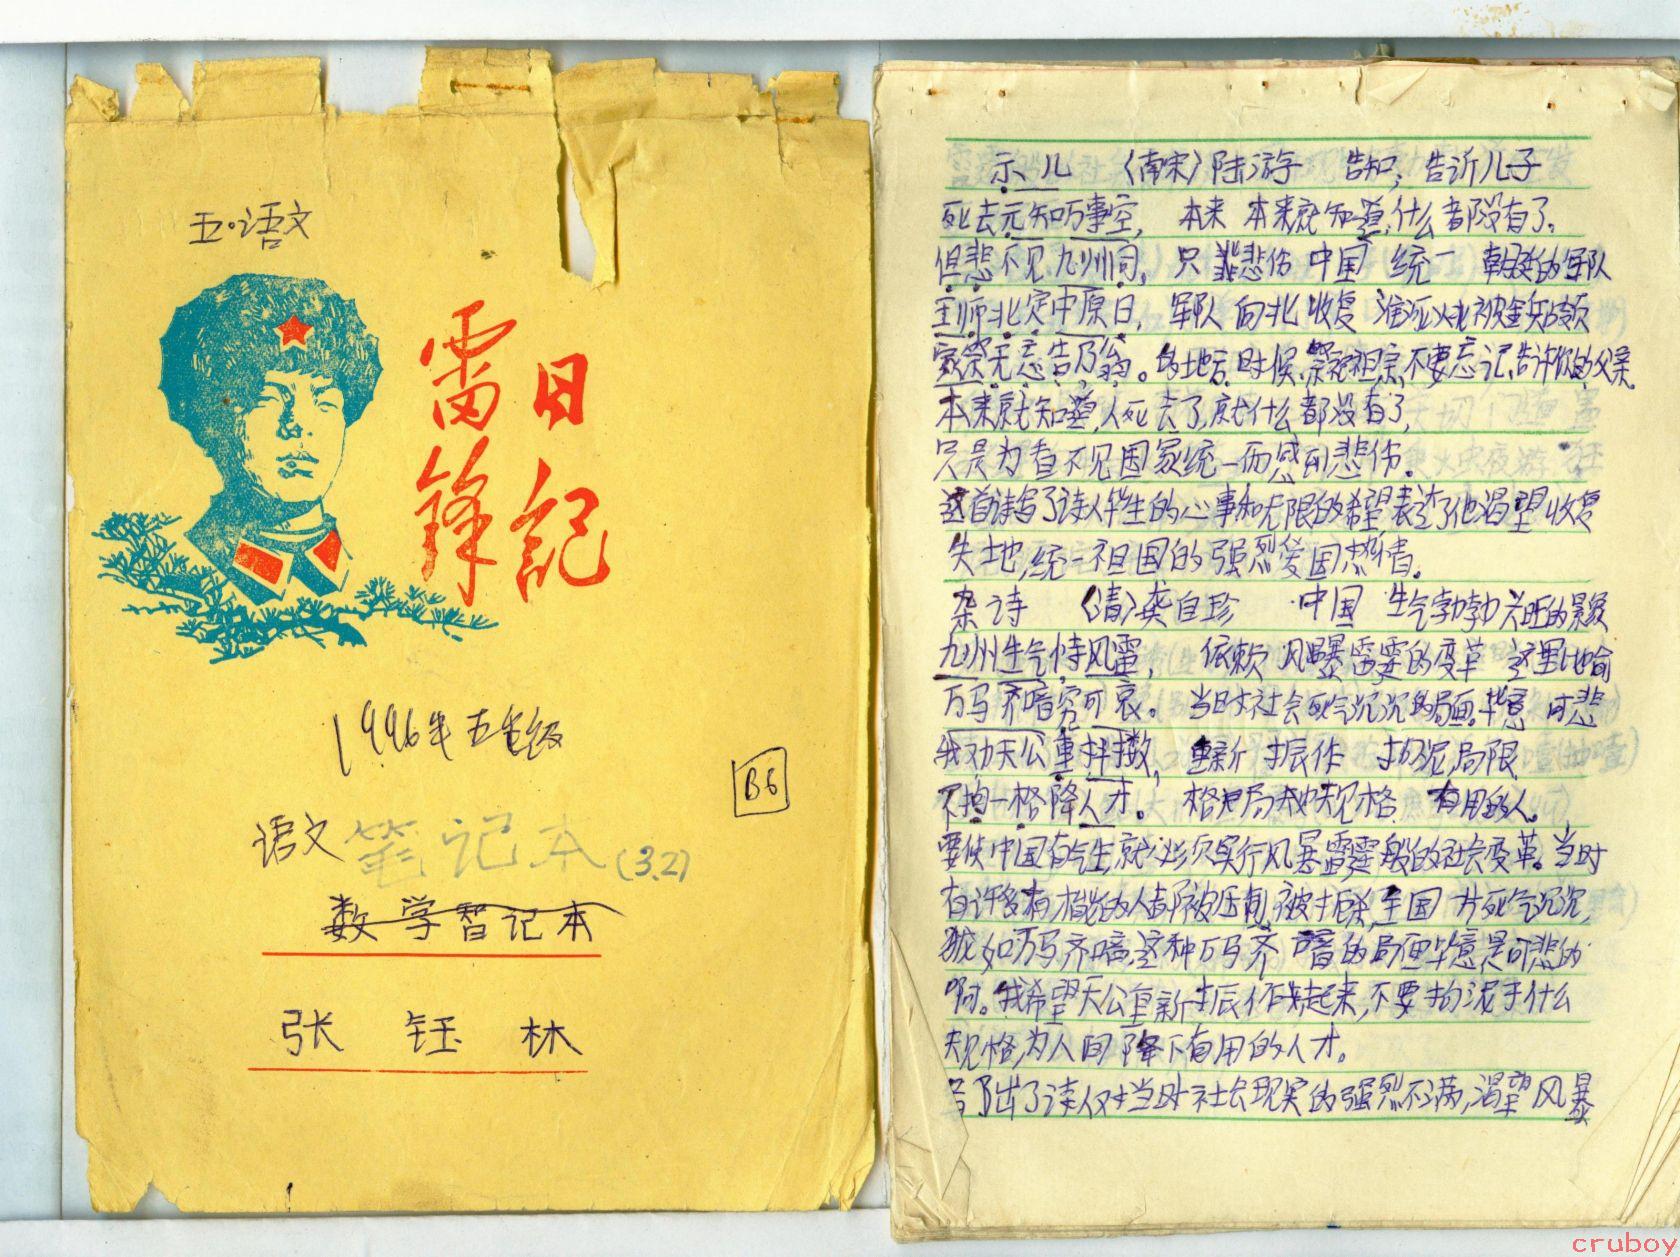 五·语文
雷锋
日记
1996年五年级
B6
语文笔记本(3.2)
数学智记本
张钰林
示儿 〈南宋〉陆游 告知,告诉儿子
死去元知万事空, 本来 本来就知道,什么都没有了。
但悲不见九州同, 只 悲伤 中国 统一 朝廷的军队
王师北定中原日, 军队 向北 收复 淮河以北被金兵占领
家祭无忘告乃翁。的地方 时候,祭祀祖宗,不要忘记,告诉你的父亲
本来就知道,人死去了,就什么都没有了,
只是为看不见国家统一而感到悲伤。
这首诗写了诗人毕生的心事和无限的希望表达了他渴望收复
失地,统一祖国的强烈爱国热情。
杂诗 〈清〉龚自珍 中国 生气勃勃 兴旺的景象
九州生气恃风雷, 依赖 风暴雷霆的变革 这里比喻
万马齐喑究可哀。 当时社会死气沉沉的局面。毕竟 可悲
我劝天公重抖擞, 重新 振作 拘泥,局限
不拘一格降人才。 格 规格 有用的人。
要使中国有气生,就必须实行风暴雷霆般的社会变革。当时
有许多有才能的人都被压制,被扼杀,全国一片死气沉沉,
就如万马齐喑,这种万马齐喑的局面毕竟是可悲的
啊。我希望天公重新振作起来,不要拘泥于什么
规格,为人间降下有用的人才。
写出了诗人对当时社会现实的强烈不满,渴望风暴
cruboy